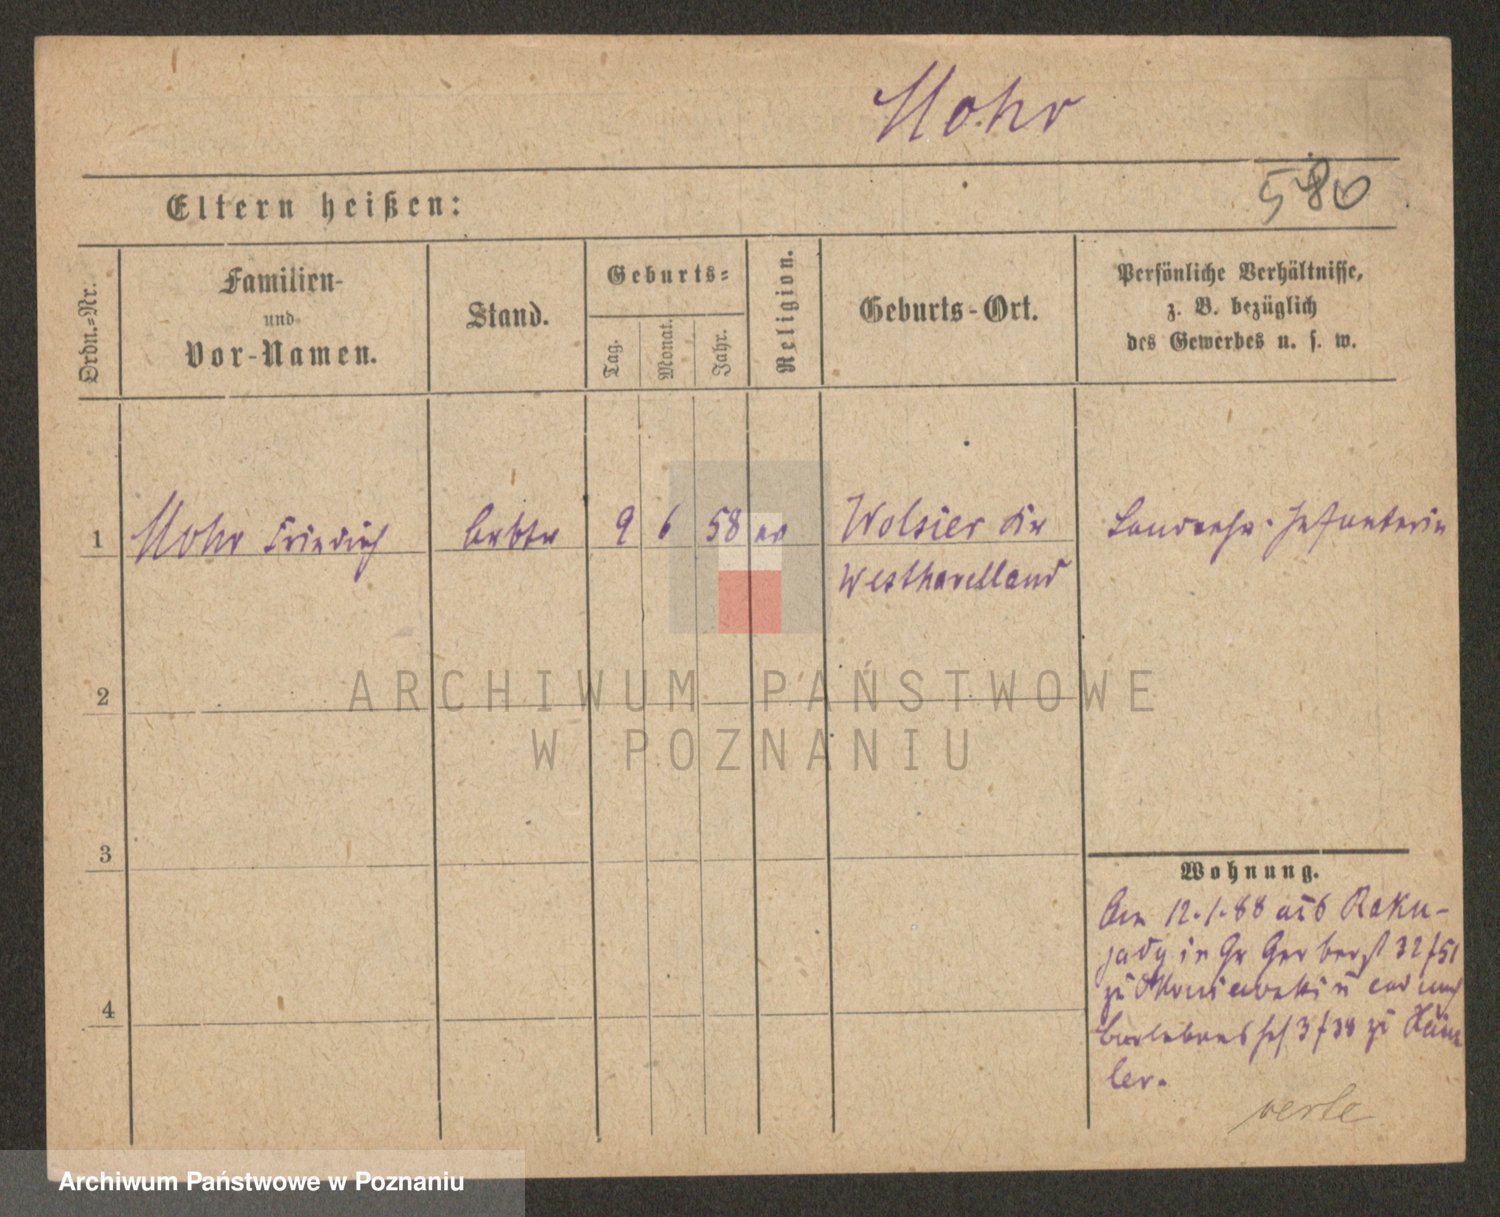 Mohr
580
Eltern heißen:
Ordn.-Nr.
Familien-
und
Vor-Namen.
Stand.
Geburts-
Tag.
Monat.
Jahr.
Religion.
Geburts-Ort.
Persönliche Verhältnisse,
z. B. bezüglich
des Gewerbes u. s. w.
1 Mohr Friedrich Arbtr 9 6 58 ev Wolsier Kr Landwehr-Infanterie
Westhavelland
2
3
4
Wohnung.
Am 12.1.88 aus Raku-
jady in Gr Gerberst 32 f 51
zu
3 f 38 zu
ler.
verte
ARCHIWUM PAŃSTWOWE
W POZNANIU
Archiwum Państwowe w Poznaniu